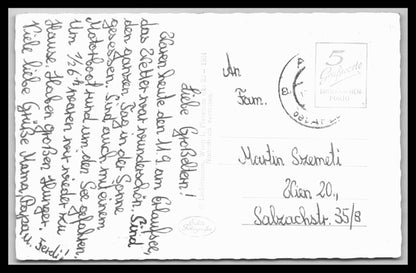 Liebe Großeltern!
Waren heute den 11.9 am Erlaufsee,
das Wetter war wunderschön. Sind
den ganzen Tag in der Sonne
gesessen. Sind auch mit einem
Motorboot rund um den See gefahren.
Um ½ 6 h waren wir wieder zu
Hause. Haben großen Hunger.
Viele liebe Grüße Mama, Papa u. Ferdi!
An
Fam.
Martin Szemeti
Wien 20.,
Salzachstr. 35/8
5